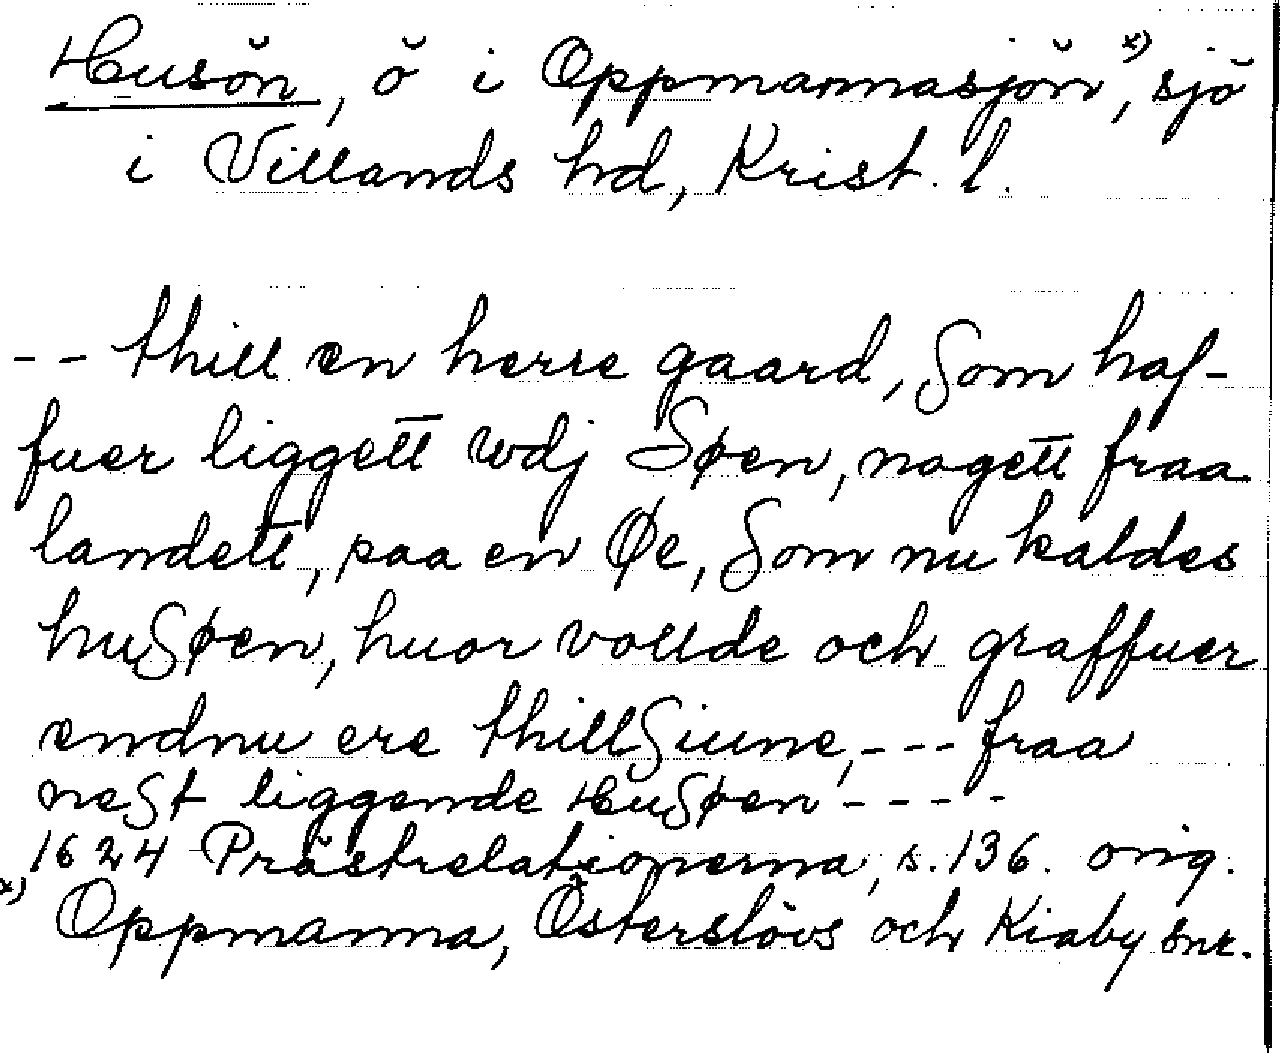 Husön, ö i Oppmannasjön x), sjö
i Villands hd, Krist. l.
-- thill en herre gaard, som haf-
fuer liggett wdj Søen, nogett fraa
landett, paa en Øe, som nu kaldes
husøen, huor vollde och graffuer
endnu ere thillsiune, --- fraa
nest liggende Husøen ----
1624 Prästrelationerna, s. 136. orig.
x) Oppmanna, Österslövs och Kiaby snr.